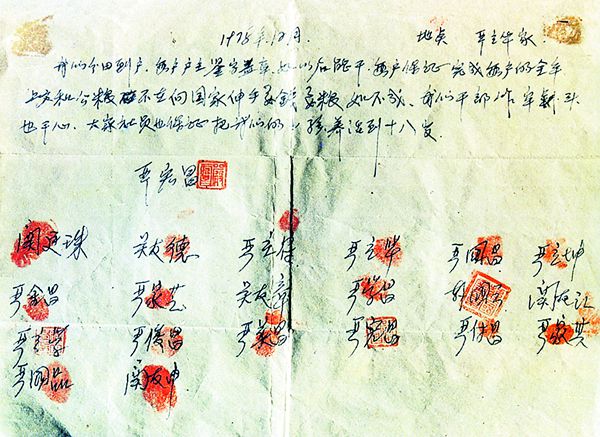 1978年12月 地点 严立华家
我们分田到户,每户户主鉴字盖章,如以后能干,每户保证完成每户的全年
上交和公粮 不在向国家伸手要钱要粮,如不成,我们干部作牢刹头
也干心,大家社员也保证把我们的小孩养活到十八岁.
严宏昌
关廷珠 关友德 严立符 严立华 严国昌 严立坤
严金昌 严家芝 关友章 严学昌 韩国云 关友江
严立学 严俊昌 严美昌 严宏昌 严付昌 严家其
严国品 关友申